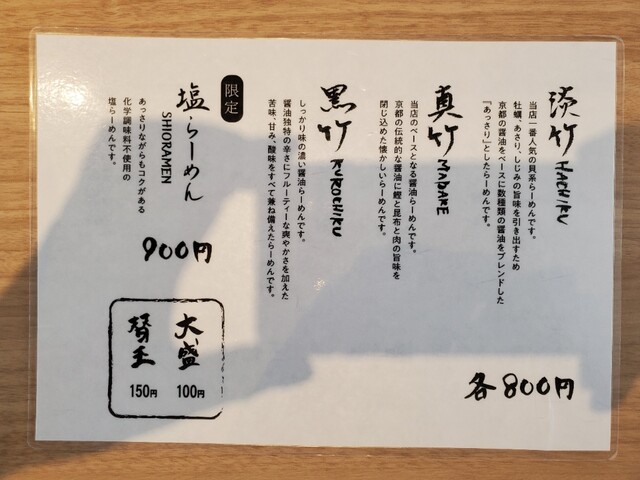 淡竹 HACHIKU
当店一番人気の貝系らーめんです。
牡蠣、あさり、しじみの旨味を引き出すため
京都の醤油をベースに数種類の醤油をブレンドした
『あっさり』としたらーめんです。
真竹 MADAKE
当店のベースとなる醤油らーめんです。
京都の伝統的な醤油に鰹と昆布と肉の旨味を
閉じ込めた懐かしいらーめんです。
黒竹 KUROCHIKU
しっかり味の濃い醤油らーめんです。
醤油独特の辛さにフルーティーな爽やかさを加えた
苦味、甘み、酸味をすべて兼ね備えたらーめんです。
各800円
限定
塩らーめん
SHIORAMEN
あっさりながらもコクがある
化学調味料不使用の
塩らーめんです。
900円
大盛
100円
替玉
150円